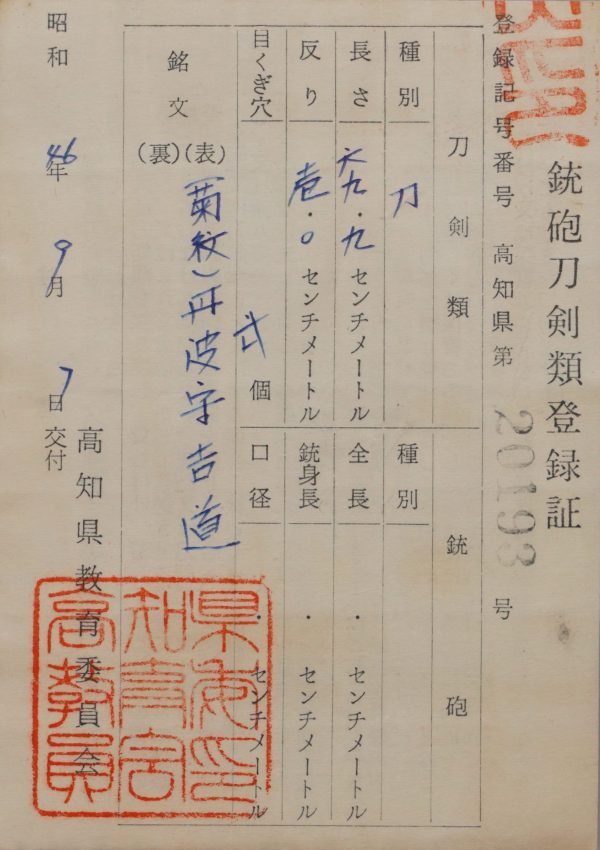 銃砲刀剣類登録証
登録記号番号 高知県第 20193 号
刀剣類 銃砲
種別 刀 種別
長さ 六九.九 センチメートル 全長 ・ センチメートル
反り 壱.〇 センチメートル 銃身長 ・ センチメートル
目くぎ穴 弐 個 口径 ・ センチメートル
銘文 (表) (菊紋)丹波守吉道
(裏)
高知県教育委員会
昭和 46年 9月 7日 交付